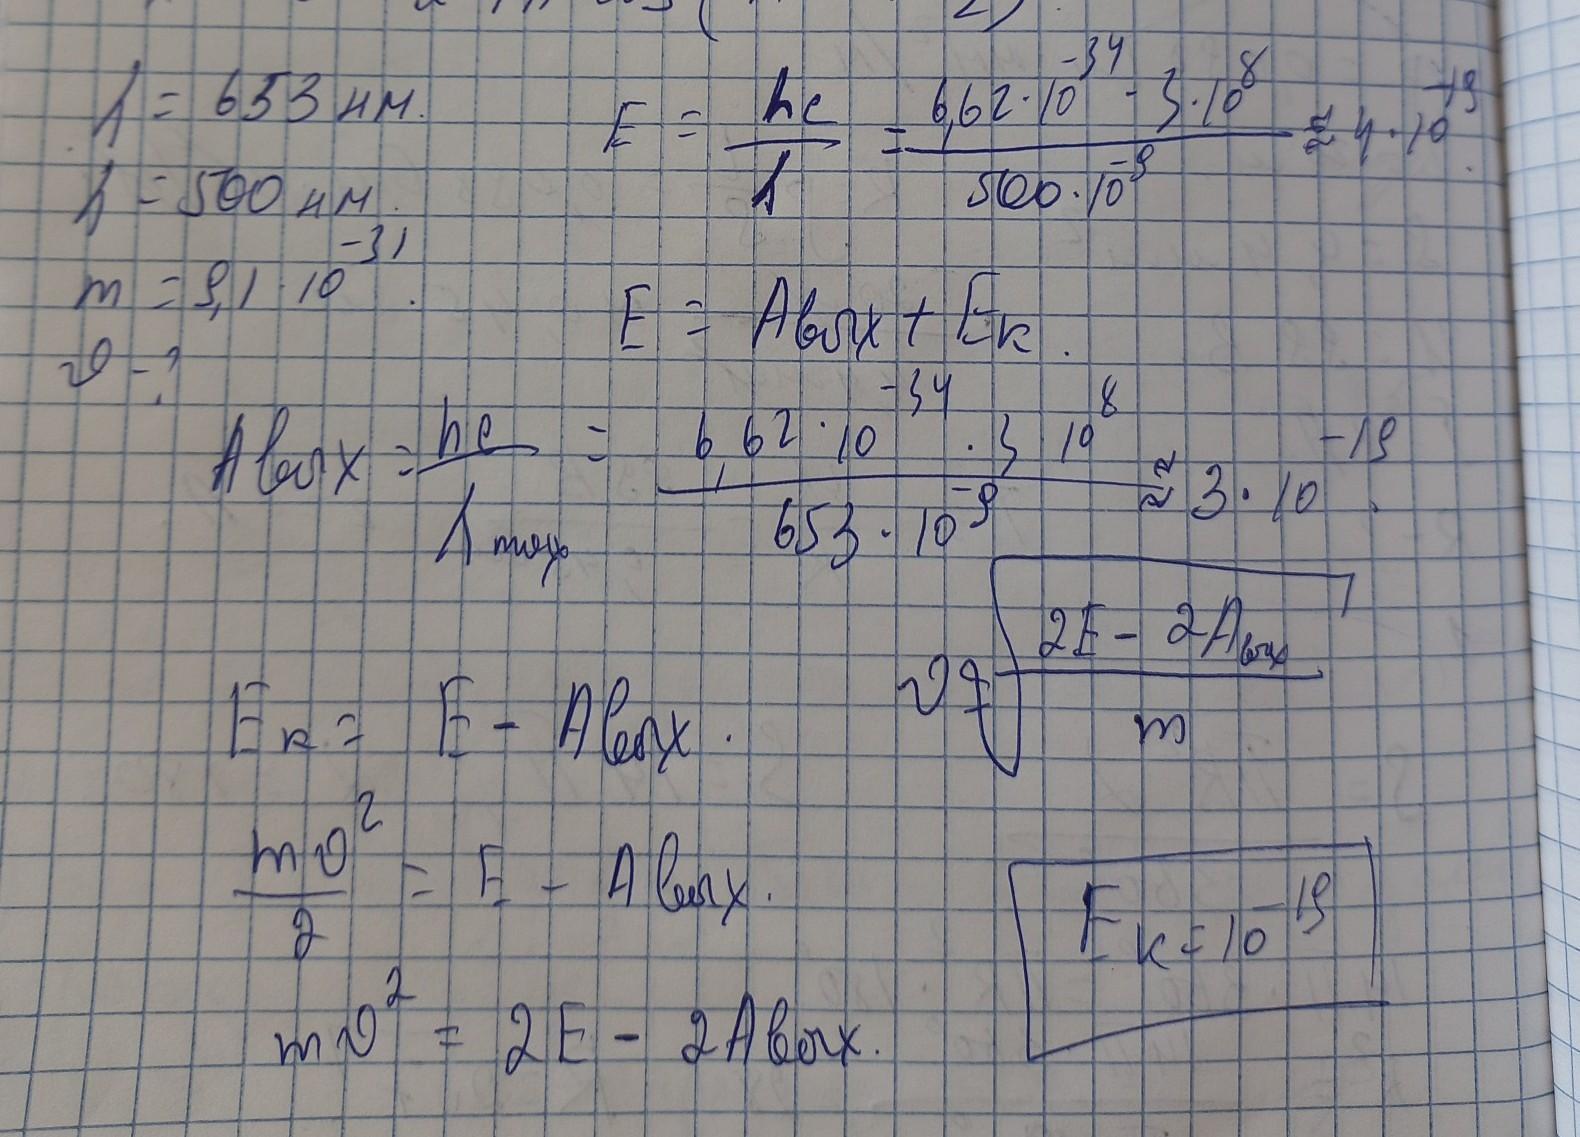 λ = 653 нм.
λ = 500 нм.
m = 9,1 · 10^-31.
υ - ?
E = hc/λ = 6,62 · 10^-34 · 3 · 10^8 / 500 · 10^-9 ≈ 4 · 10^-19.
E = Aвых + Eк.
Aвых = hc/λmax = 6,62 · 10^-34 · 3 10^8 / 653 · 10^-9 ≈ 3 · 10^-19.
υ = √(2E - 2Aвых / m)
Eк = E - Aвых.
mυ^2/2 = E - Aвых.
Eк = 10^-19
mυ^2 = 2E - 2Aвых.